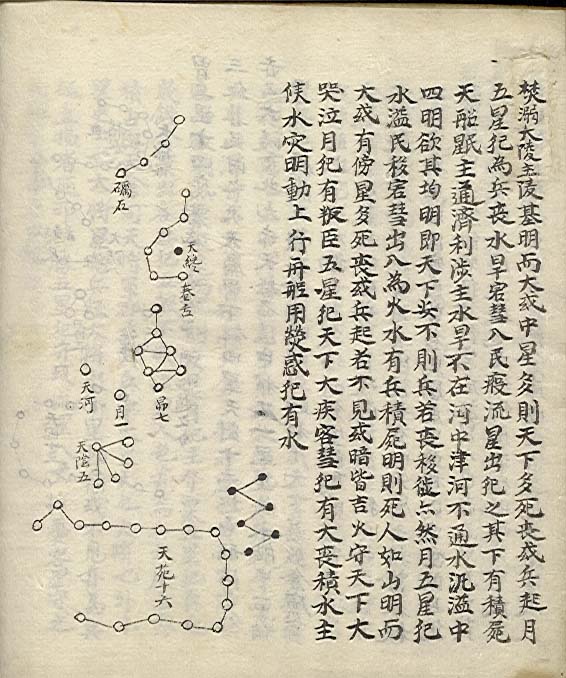 焚溺大陵主陵墓明而大或中星多則天下多死喪或兵起月
五星犯為兵喪水旱客彗入民疫流星出犯之其下有積屍
天船主通濟利涉主水旱不在河中津河不通水汎溢中
四明欲其均明即天下安不則兵若喪移徙亦然月五星犯
水溢民移客彗出入為火水有兵積死明則死人如山明而
大或有傍星多死喪或兵起若不見或暗皆吉火守天下大
哭泣月犯有叛臣五星犯天下大疾客彗犯有大喪積水主
候水灾明動上行舟船用熒惑犯有水
礪石
天
卷舌
昴七
月一
天河
天陰五
天苑十六